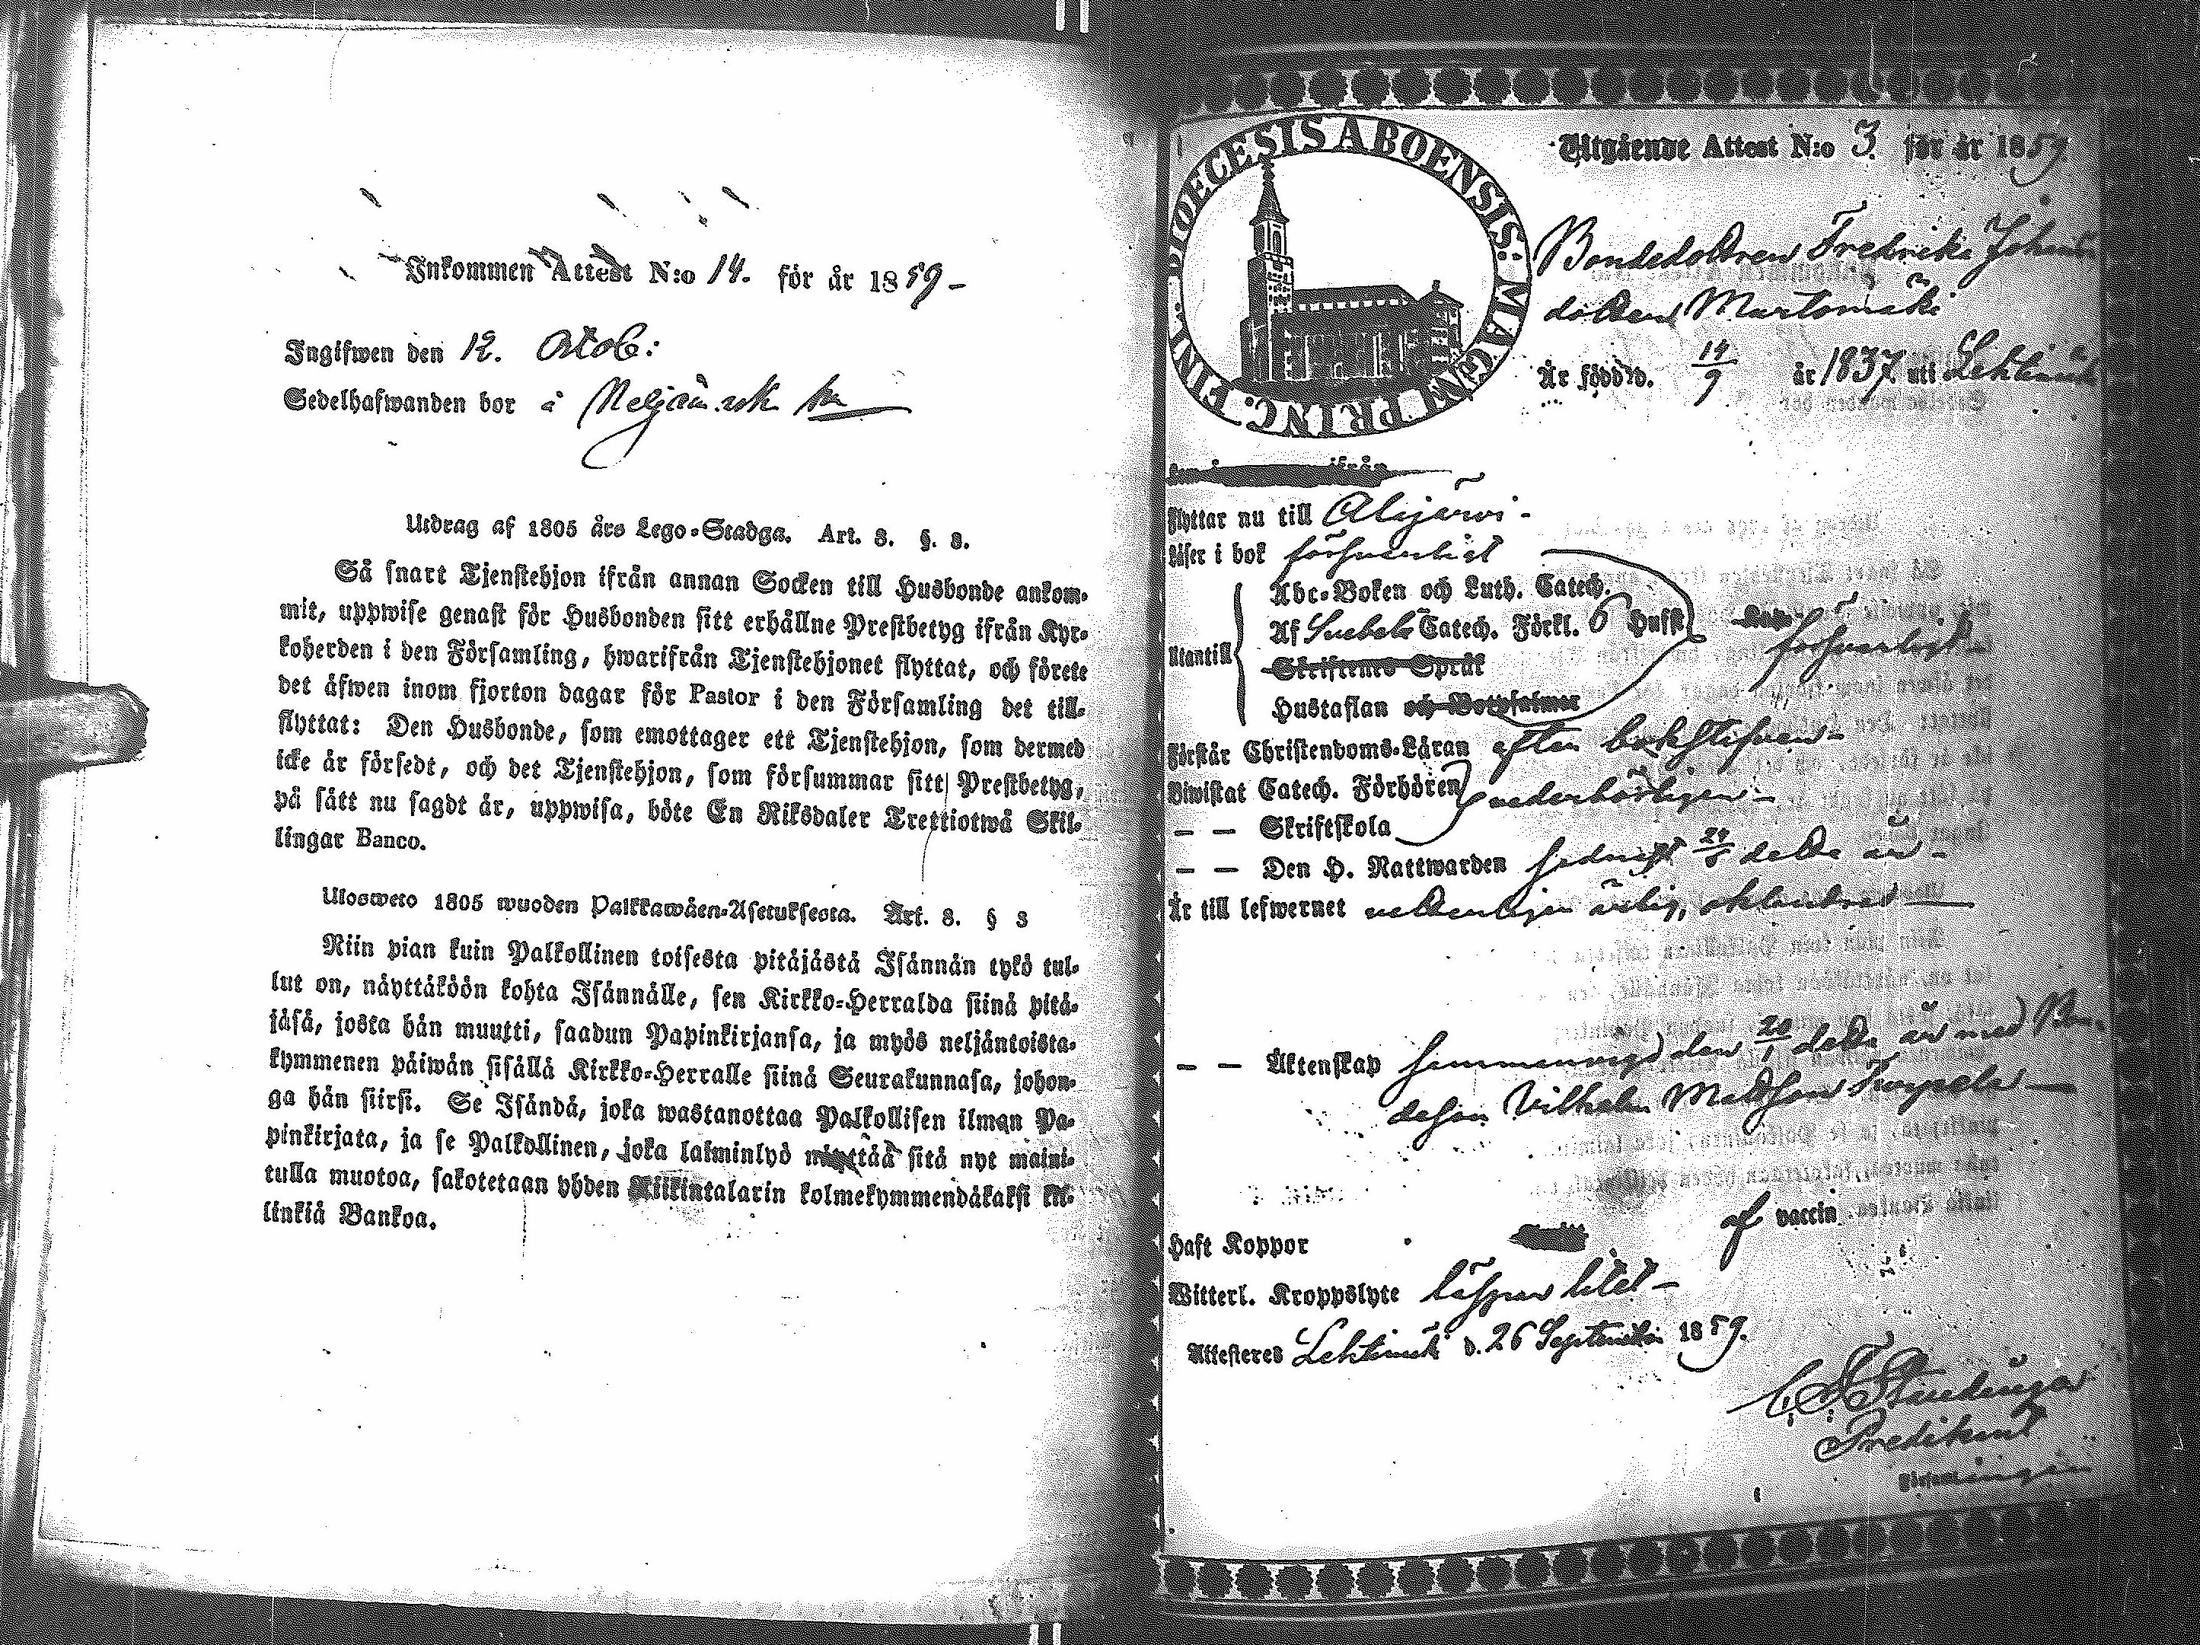 Inkommen Attest N:o 14. för år 1859 -
Ingifwen den 12. Octob:
Sedelhafwanden bor å
Utdrag af 1805 års Lego-Stadga. Art. 3. §. 3.
Så snart Tjenstehjon ifrån annan Socken till Husbonde ankom-
mit, uppwise genast för Husbonden sitt erhållne Prestbetyg ifrån Kyr-
koherden i den Församling, hwarifrån Tjenstehjonet flyttat, och förete
det äfwen inom fjorton dagar för Pastor i den Församling det till-
flyttat: Den Husbonde, som emottager ett Tjenstehjon, som dermed
icke är försedt, och det Tjenstehjon, som försummar sitt Prestbetyg,
på sätt nu sagdt är, uppwisa, böte En Riksdaler Trettiotwå Skil-
lingar Banco.
Ulosweto 1805 wuoden Palkkawäen-Asetuksesta. Art. 3. § 3
Niin pian kuin Palkollinen toisesta pitäjästä Isännän tykö tul-
lut on, näyttäköön kohta Isännälle, sen Kirkko-Herralda siinä pitä-
jäsä, josta hän muutti, saadun Papinkirjansa, ja myös neljäntoista-
kymmenen päiwän sisällä Kirkko-Herralle siinä Seurakunnasa, johon-
ga hän siirsi. Se Isändä, joka wastanottaa Palkollisen ilman Pa-
pinkirjata, ja se Palkollinen, joka laiminlyö näyttää sitä nyt maini-
tulla muotoa, sakotetaan yhden Riikintalarin kolmekymmendäkaksi kil-
linkiä Bankoa.
DIOECESIS ABOENSIS: MAGNI PRINC. FINL.
Utgående Attest N:o 3. för år 1859
Bondedottren Fredrika Johans
dotter Murtomäki
Är född d. 14/9 år 1837. uti Lehtimäki
flyttar nu till Alajärvi -
Läser i bok försvarligt
Abc-Boken och Luth. Catech.
Utantill Af Svebels Catech. Förkl. 6 Hufst försvarligt -
Skriftenes Språk
Hustaflan och Botpsalmer
Förstår Christendoms-Läran efter bokstafven -
Biwistat Catech. Förhören vederbörligen -
— — Skriftskola
— — Den H. Nattwarden sednast 24/8 detta år -
Är till lefwernet veterligen ärlig, oklandrad —
— — Äktenskap sammanvigd den 20/1 detta år med Bon-
deson Vilhelm Mattsson —
Haft Koppor af vaccin
Witterl. Kroppslyte läspar litet -
Attesteras Lehtimäki d. 26 September 1859.
Predikant